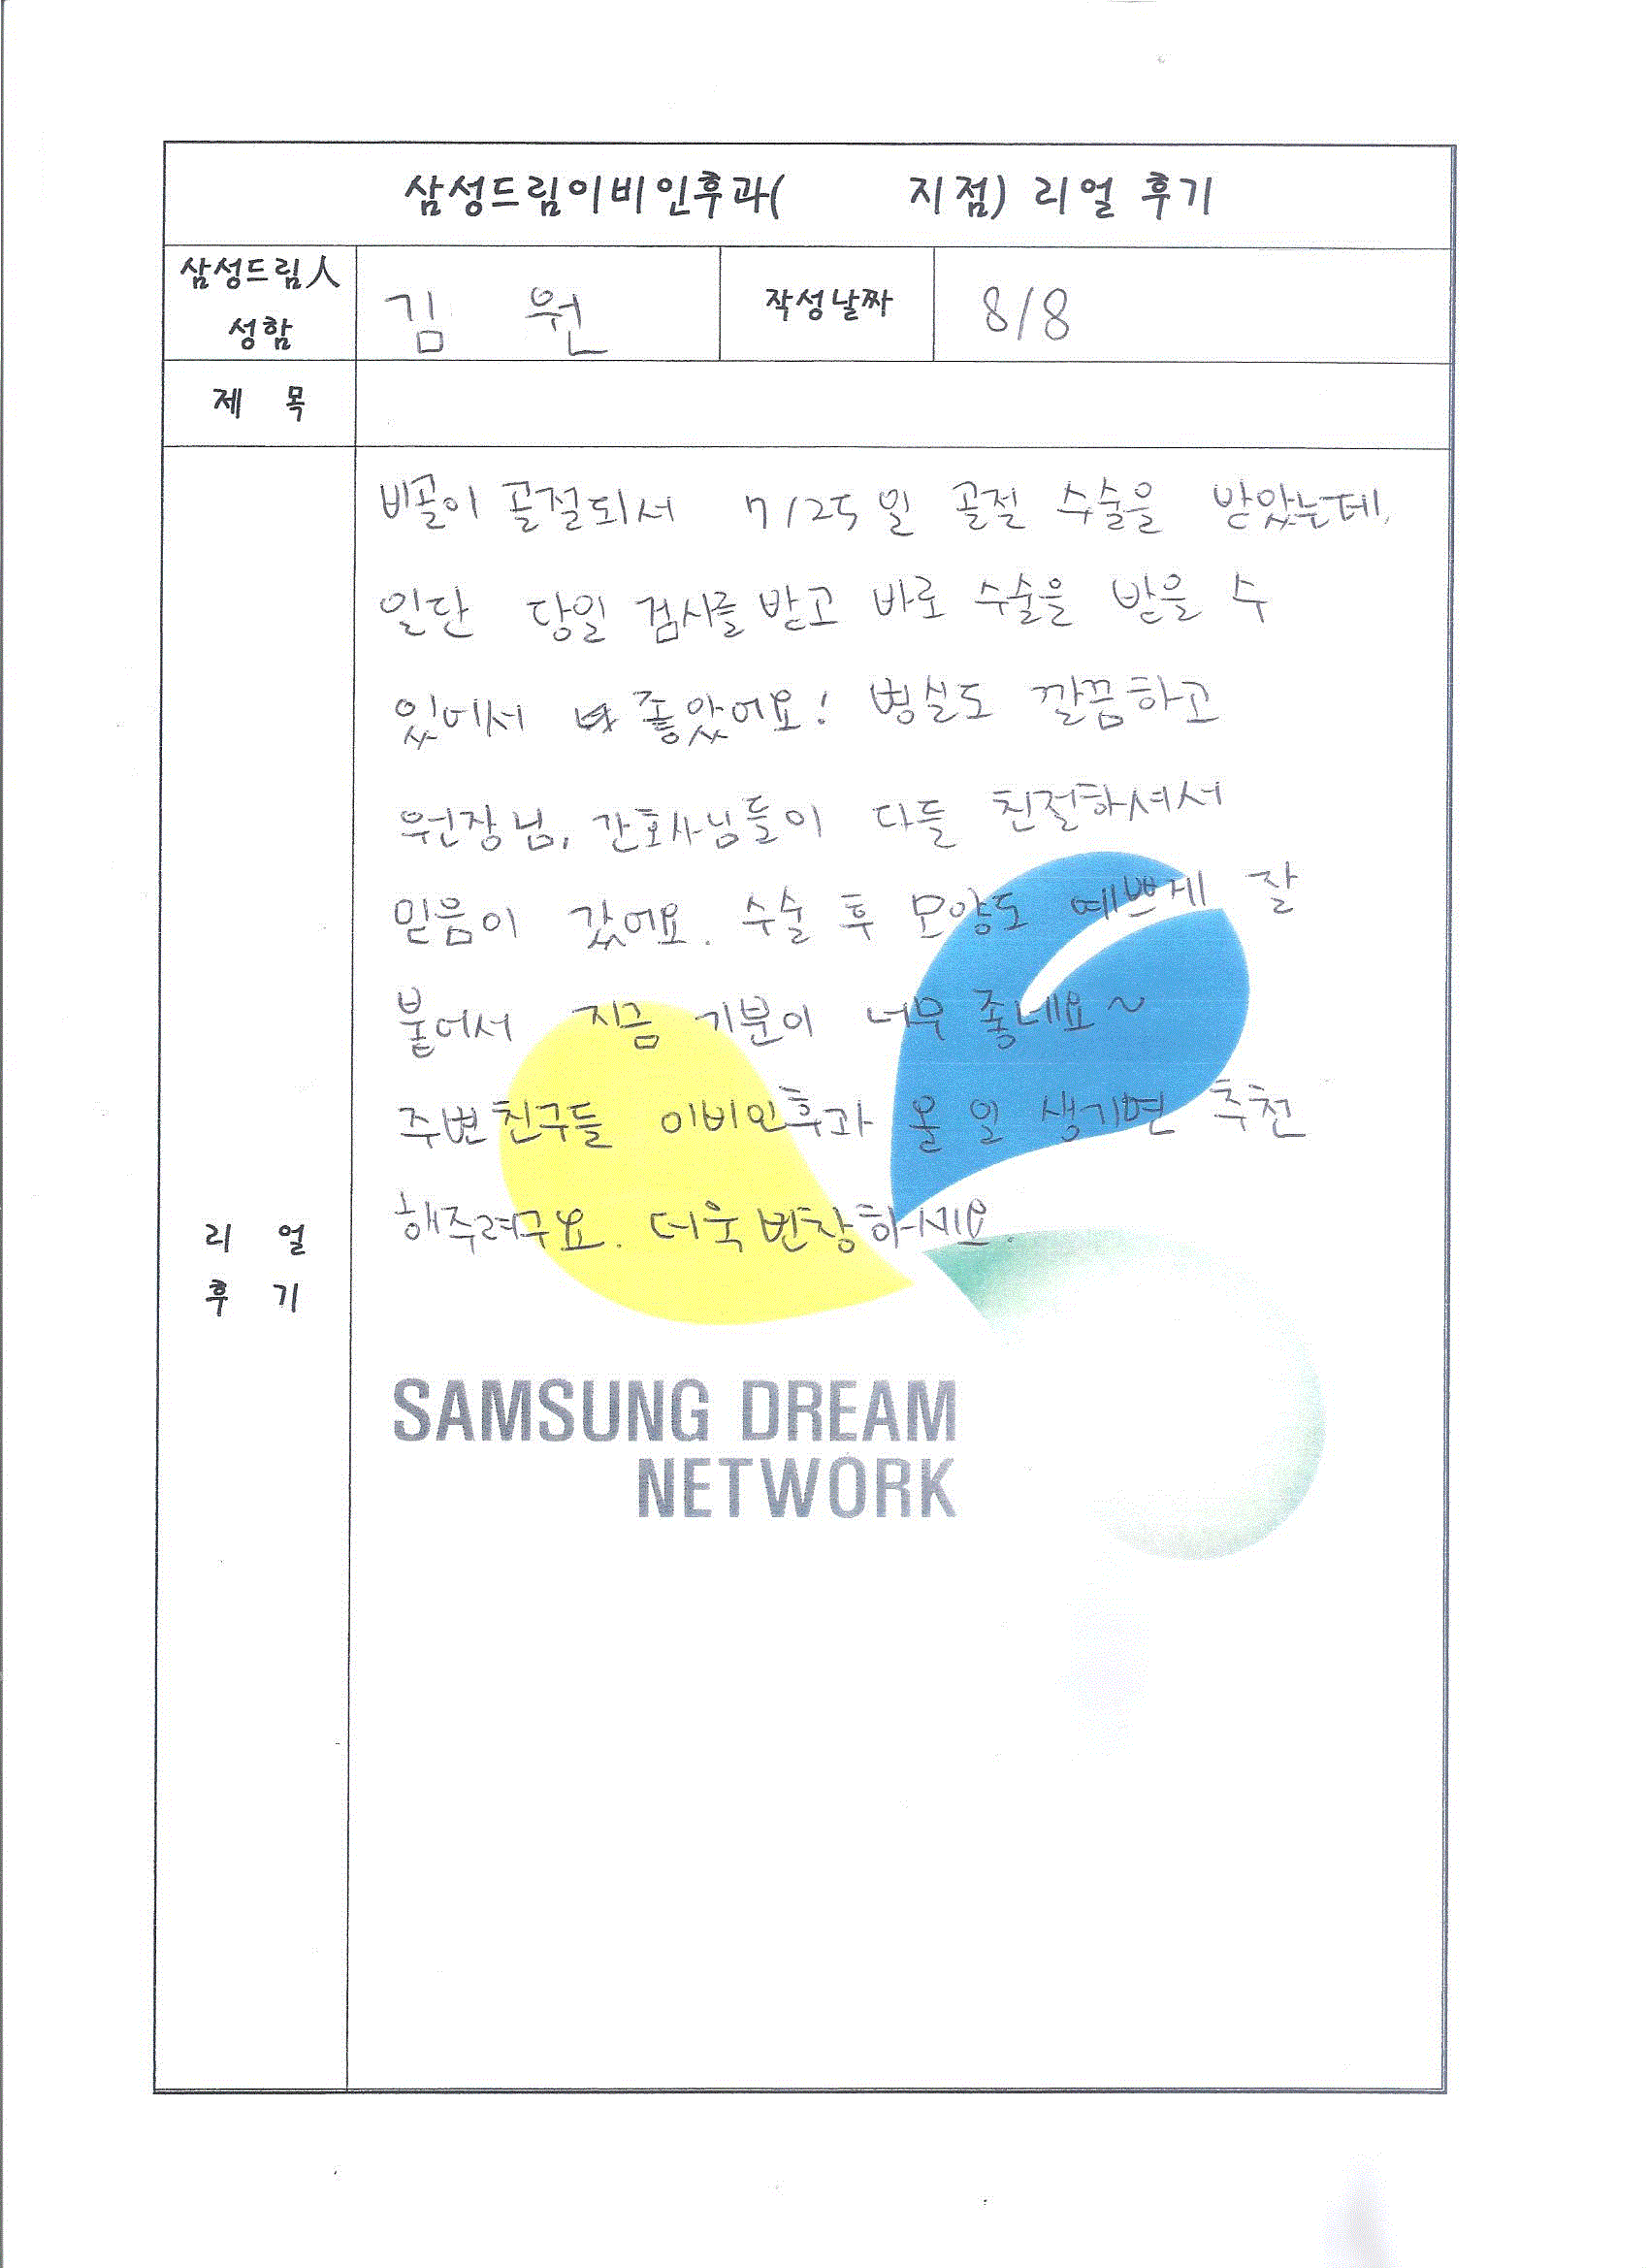 삼성드림이비인후과(      지점) 리얼 후기
삼성드림人
성함
김 원
작성날짜
8/8
제 목
비골이 골절되서 7/25일 골절 수술을 받았는데,
일단 당일 검사를 받고 바로 수술을 받을 수
있어서 좋았어요! 병실도 깔끔하고
원장님, 간호사님들이 다들 친절하셔서
믿음이 갔어요. 수술 후 모양도 예쁘게 잘
붙어서 지금 기분이 너무 좋네요~
주변 친구들 이비인후과 올 일 생기면 추천
해주려구요. 더욱 번창하세요.
리 얼
후 기
SAMSUNG DREAM
NETWORK